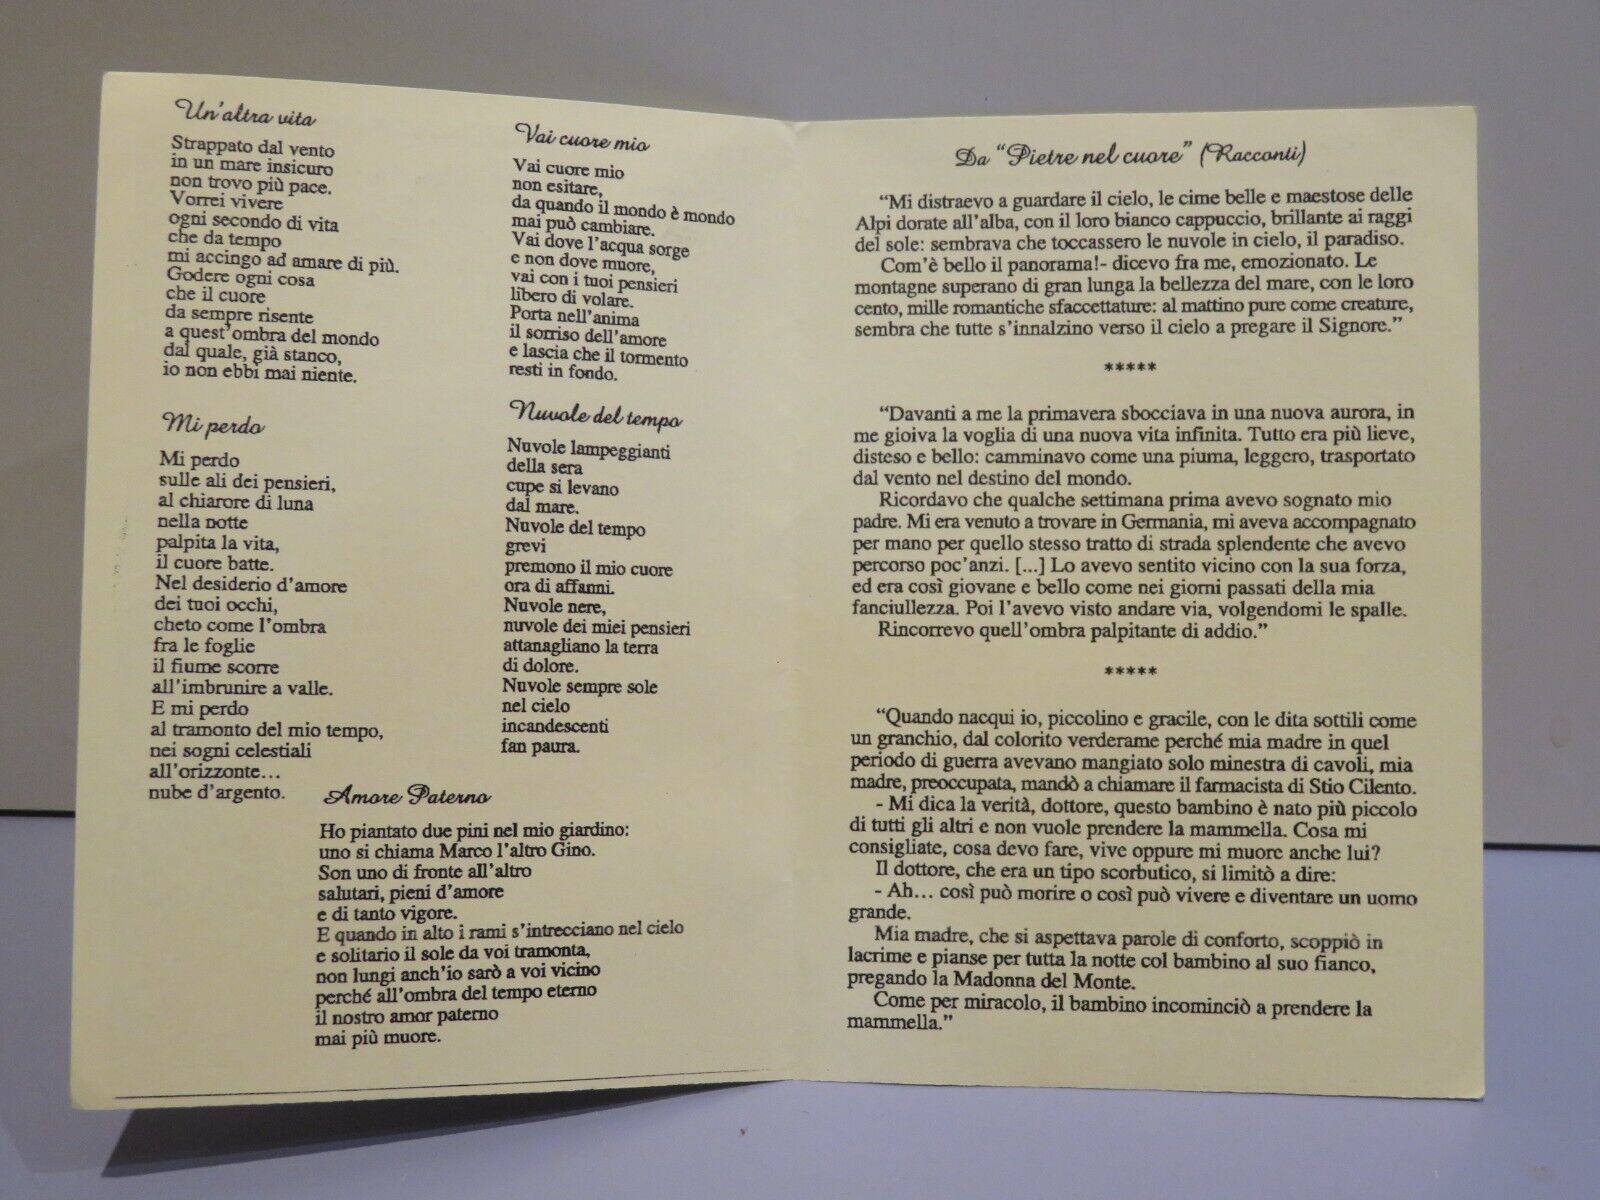 Un'altra vita
Strappato dal vento
in un mare insicuro
non trovo più pace.
Vorrei vivere
ogni secondo di vita
che da tempo
mi accingo ad amare di più.
Godere ogni cosa
che il cuore
da sempre risente
a quest'ombra del mondo
dal quale, già stanco,
io non ebbi mai niente.
Mi perdo
Mi perdo
sulle ali dei pensieri,
al chiarore di luna
nella notte
palpita la vita,
il cuore batte.
Nel desiderio d'amore
dei tuoi occhi,
cheto come l'ombra
fra le foglie
il fiume scorre
all'imbrunire a valle.
E mi perdo
al tramonto del mio tempo,
nei sogni celestiali
all'orizzonte...
nube d'argento.
Vai cuore mio
Vai cuore mio
non esitare,
da quando il mondo è mondo
mai può cambiare.
Vai dove l'acqua sorge
e non dove muore,
vai con i tuoi pensieri
libero di volare.
Porta nell'anima
il sorriso dell'amore
e lascia che il tormento
resti in fondo.
Nuvole del tempo
Nuvole lampeggianti
della sera
cupe si levano
dal mare.
Nuvole del tempo
grevi
premono il mio cuore
ora di affanni.
Nuvole nere,
nuvole dei miei pensieri
attanagliano la terra
di dolore.
Nuvole sempre sole
nel cielo
incandescenti
fan paura.
Amore Paterno
Ho piantato due pini nel mio giardino:
uno si chiama Marco l'altro Gino.
Son uno di fronte all'altro
salutari, pieni d'amore
e di tanto vigore.
E quando in alto i rami s'intrecciano nel cielo
e solitario il sole da voi tramonta,
non lungi anch'io sarò a voi vicino
perché all'ombra del tempo eterno
il nostro amor paterno
mai più muore.
Da "Pietre nel cuore" (Racconti)
"Mi distraevo a guardare il cielo, le cime belle e maestose delle
Alpi dorate all'alba, con il loro bianco cappuccio, brillante ai raggi
del sole: sembrava che toccassero le nuvole in cielo, il paradiso.
Com'è bello il panorama!- dicevo fra me, emozionato. Le
montagne superano di gran lunga la bellezza del mare, con le loro
cento, mille romantiche sfaccettature: al mattino pure come creature,
sembra che tutte s'innalzino verso il cielo a pregare il Signore."
*****
"Davanti a me la primavera sbocciava in una nuova aurora, in
me gioiva la voglia di una nuova vita infinita. Tutto era più lieve,
disteso e bello: camminavo come una piuma, leggero, trasportato
dal vento nel destino del mondo.
Ricordavo che qualche settimana prima avevo sognato mio
padre. Mi era venuto a trovare in Germania, mi aveva accompagnato
per mano per quello stesso tratto di strada splendente che avevo
percorso poc'anzi. [...] Lo avevo sentito vicino con la sua forza,
ed era così giovane e bello come nei giorni passati della mia
fanciullezza. Poi l'avevo visto andare via, volgendomi le spalle.
Rincorrevo quell'ombra palpitante di addio."
*****
"Quando nacqui io, piccolino e gracile, con le dita sottili come
un granchio, dal colorito verderame perché mia madre in quel
periodo di guerra avevano mangiato solo minestra di cavoli, mia
madre, preoccupata, mandò a chiamare il farmacista di Stio Cilento.
- Mi dica la verità, dottore, questo bambino è nato più piccolo
di tutti gli altri e non vuole prendere la mammella. Cosa mi
consigliate, cosa devo fare, vive oppure mi muore anche lui?
Il dottore, che era un tipo scorbutico, si limitò a dire:
- Ah... così può morire o così può vivere e diventare un uomo
grande.
Mia madre, che si aspettava parole di conforto, scoppiò in
lacrime e pianse per tutta la notte col bambino al suo fianco,
pregando la Madonna del Monte.
Come per miracolo, il bambino incominciò a prendere la
mammella."